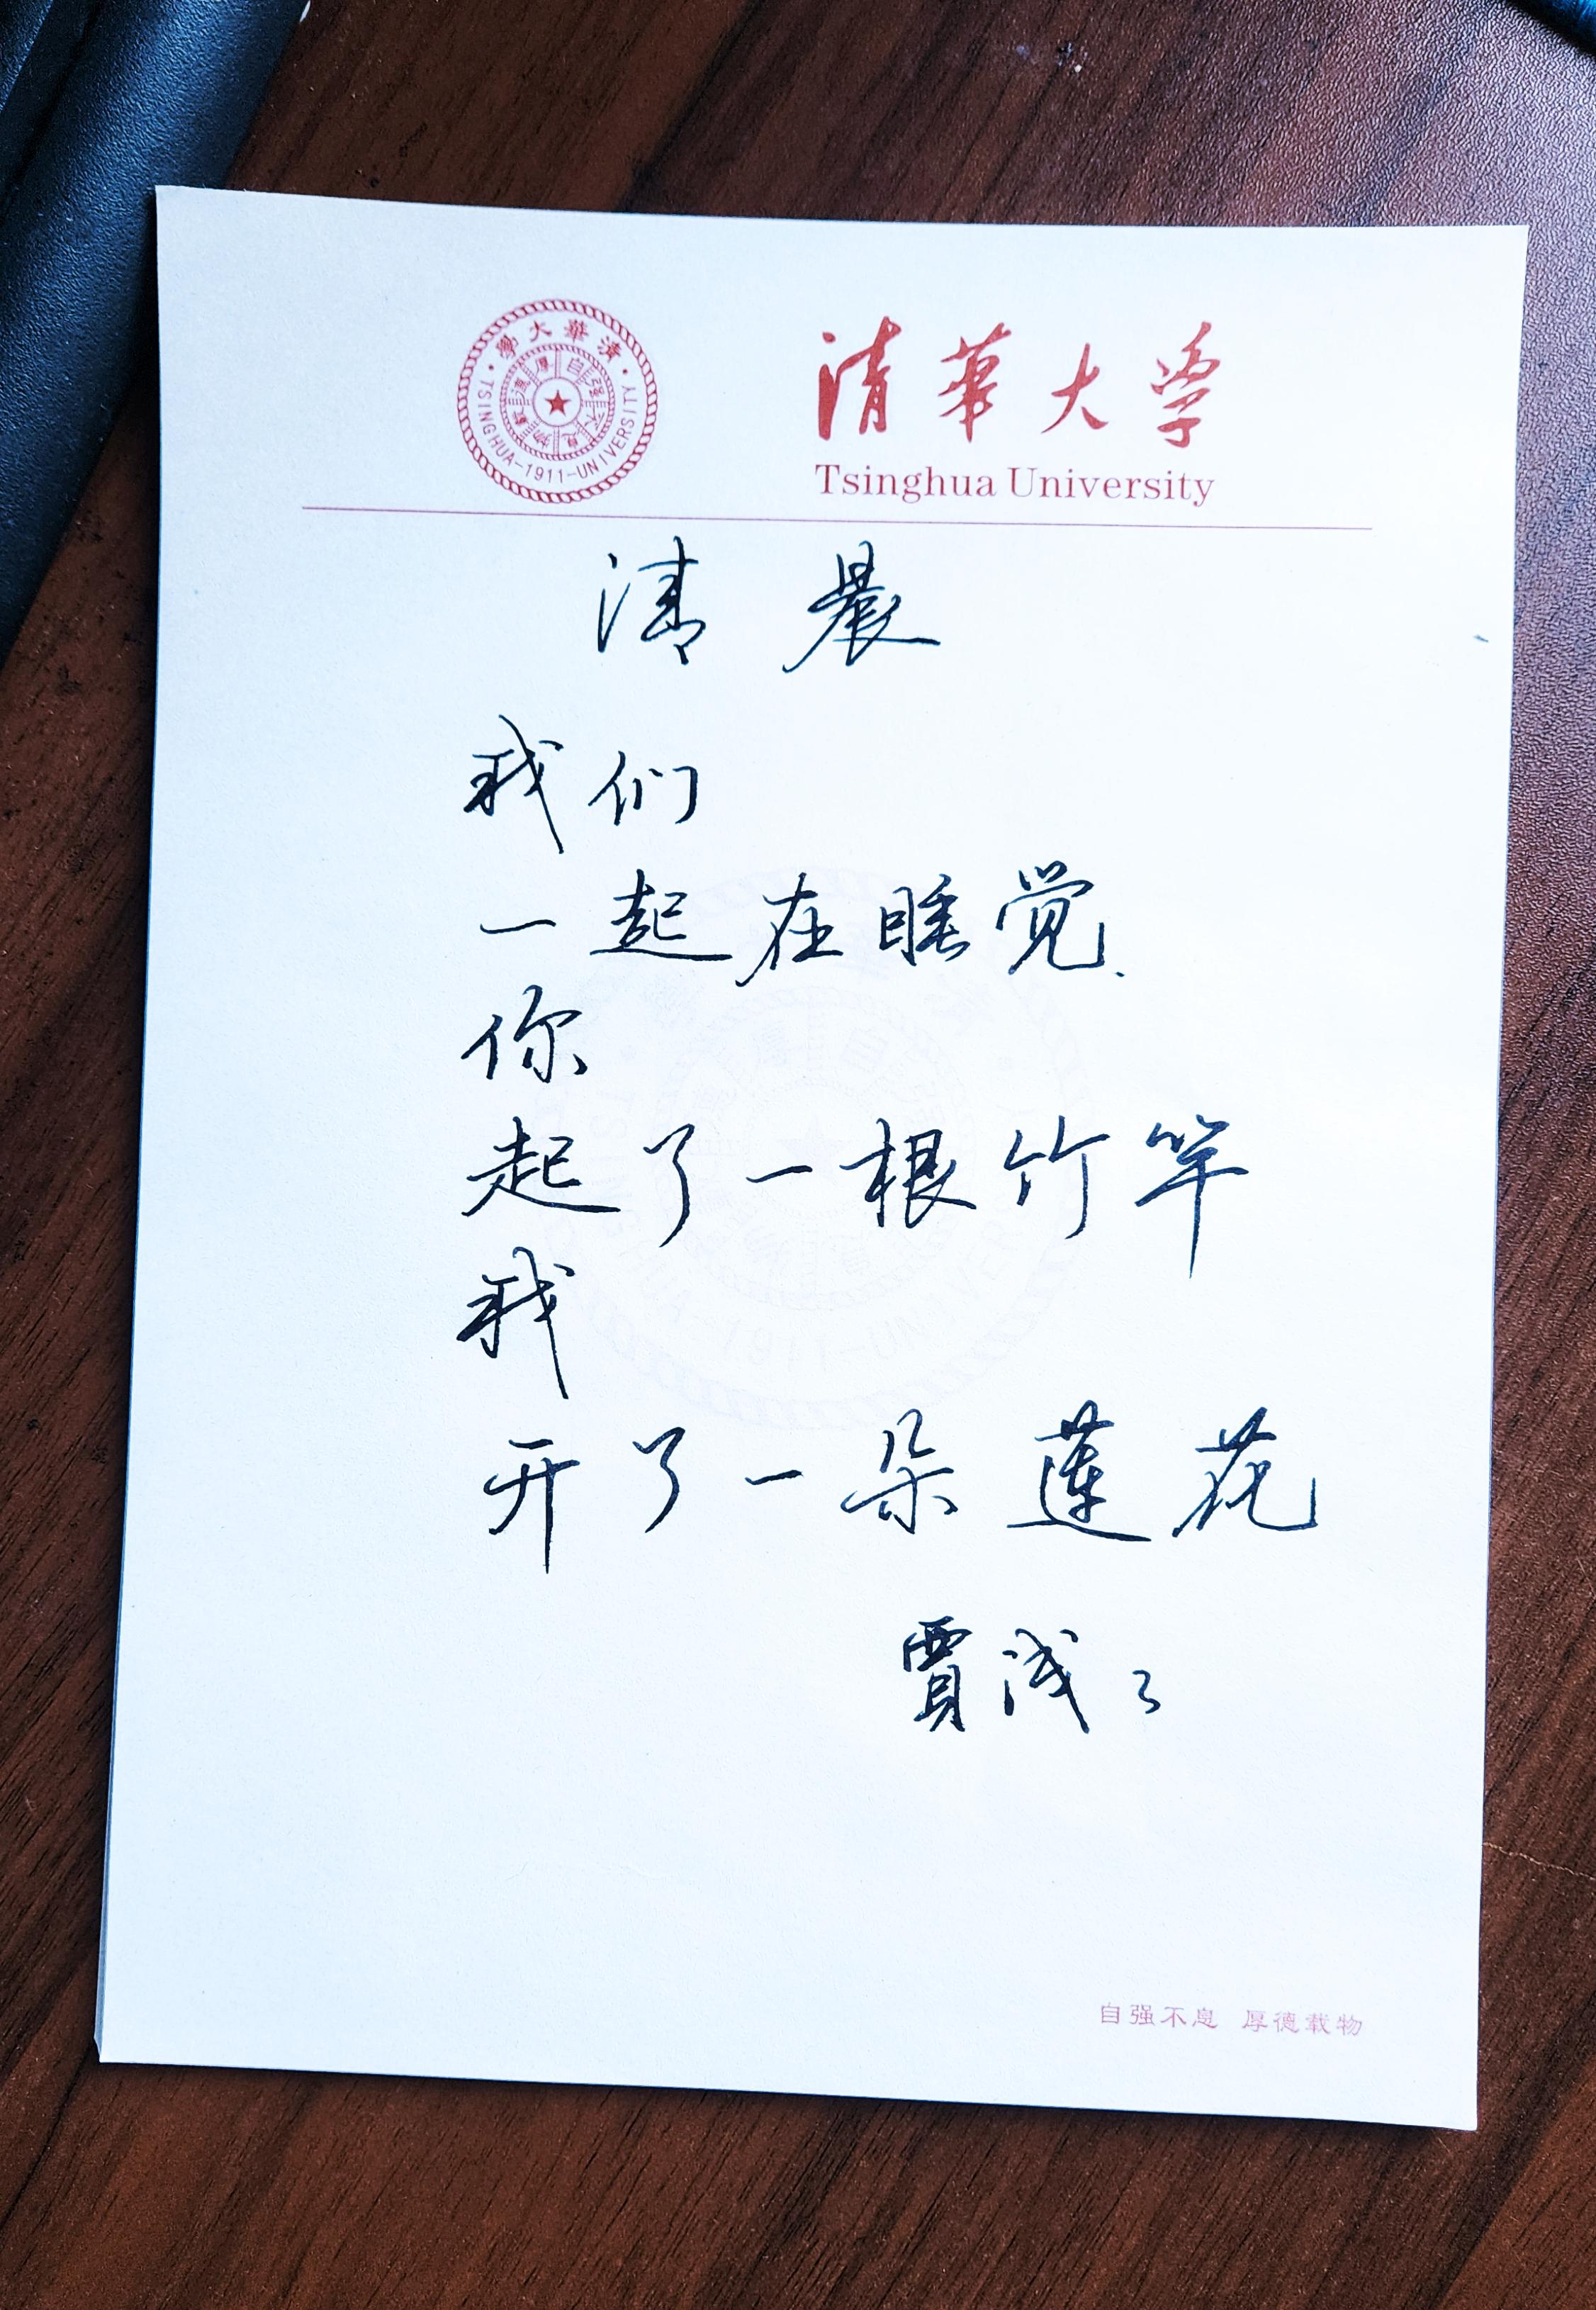 清華大學
TSINGHUA-1911-UNIVERSITY
清华大学
Tsinghua University
清晨
我们
一起在睡觉.
你
起了一根竹竿
我
开了一朵莲花
賈浅々
自强不息 厚德载物